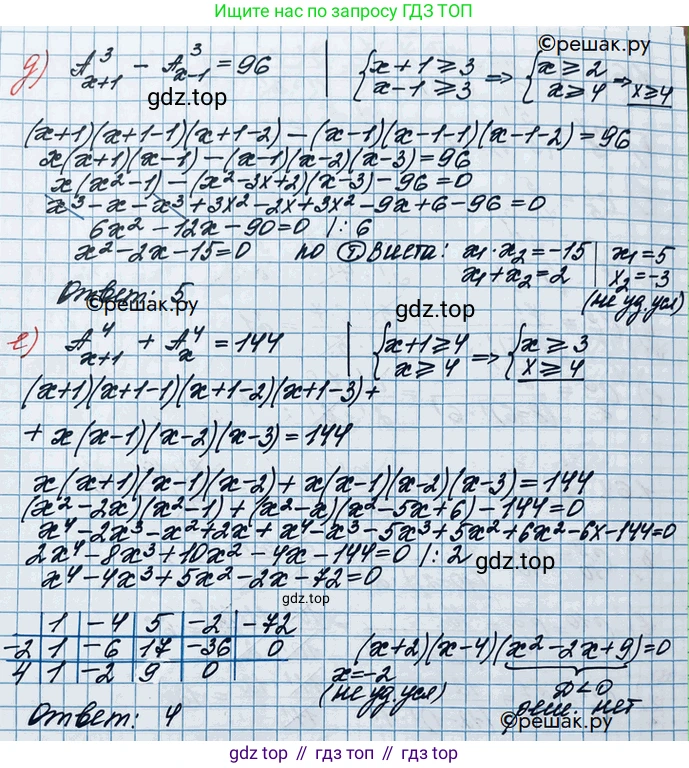 Ищите нас по запросу ГДЗ ТОП
д) A³ₓ₊₁ − A³ₓ₋₁ = 96 | {x+1⩾3 x−1⩾3 => {x⩾2 x⩾4 => x⩾4
©решак.ру
gdz.top
(x+1)(x+1−1)(x+1−2)−(x−1)(x−1−1)(x−1−2)=96
x(x+1)(x−1)−(x−1)(x−2)(x−3)=96
x(x²−1)−(x²−3x+2)(x−3)−96=0
x³−x−x³+3x²−2x+3x²−9x+6−96=0
6x²−12x−90=0 /: 6
x²−2x−15=0 по Ⓣ Виета: x₁·x₂=−15 | x₁=5
x₁+x₂=2 | x₂=−3
(не уд. усл)
Ответ: 5
©решак.ру
gdz.top
е) A⁴ₓ₊₁ + A⁴ₓ = 144 | {x+1⩾4 x⩾4 => {x⩾3 x⩾4
(x+1)(x+1−1)(x+1−2)(x+1−3)+
+x(x−1)(x−2)(x−3)=144
x(x+1)(x−1)(x−2)+x(x−1)(x−2)(x−3)=144
(x²−2x)(x²−1)+(x²−x)(x²−5x+6)−144=0
x⁴−2x³−x²+2x+x⁴−x³−5x³+5x²+6x²−6x−144=0
2x⁴−8x³+10x²−4x−144=0 /: 2
gdz.top
x⁴−4x³+5x²−2x−72=0
gdz.top
1 −4 5 −2 −72
−2 1 −6 17 −36 0
4 1 −2 9 0
(x+2)(x−4)(x²−2x+9)=0
x=−2
(не уд. усл)
D<0
реш. нет
Ответ: 4
©решак.ру
gdz top // гдз топ // gdz.top